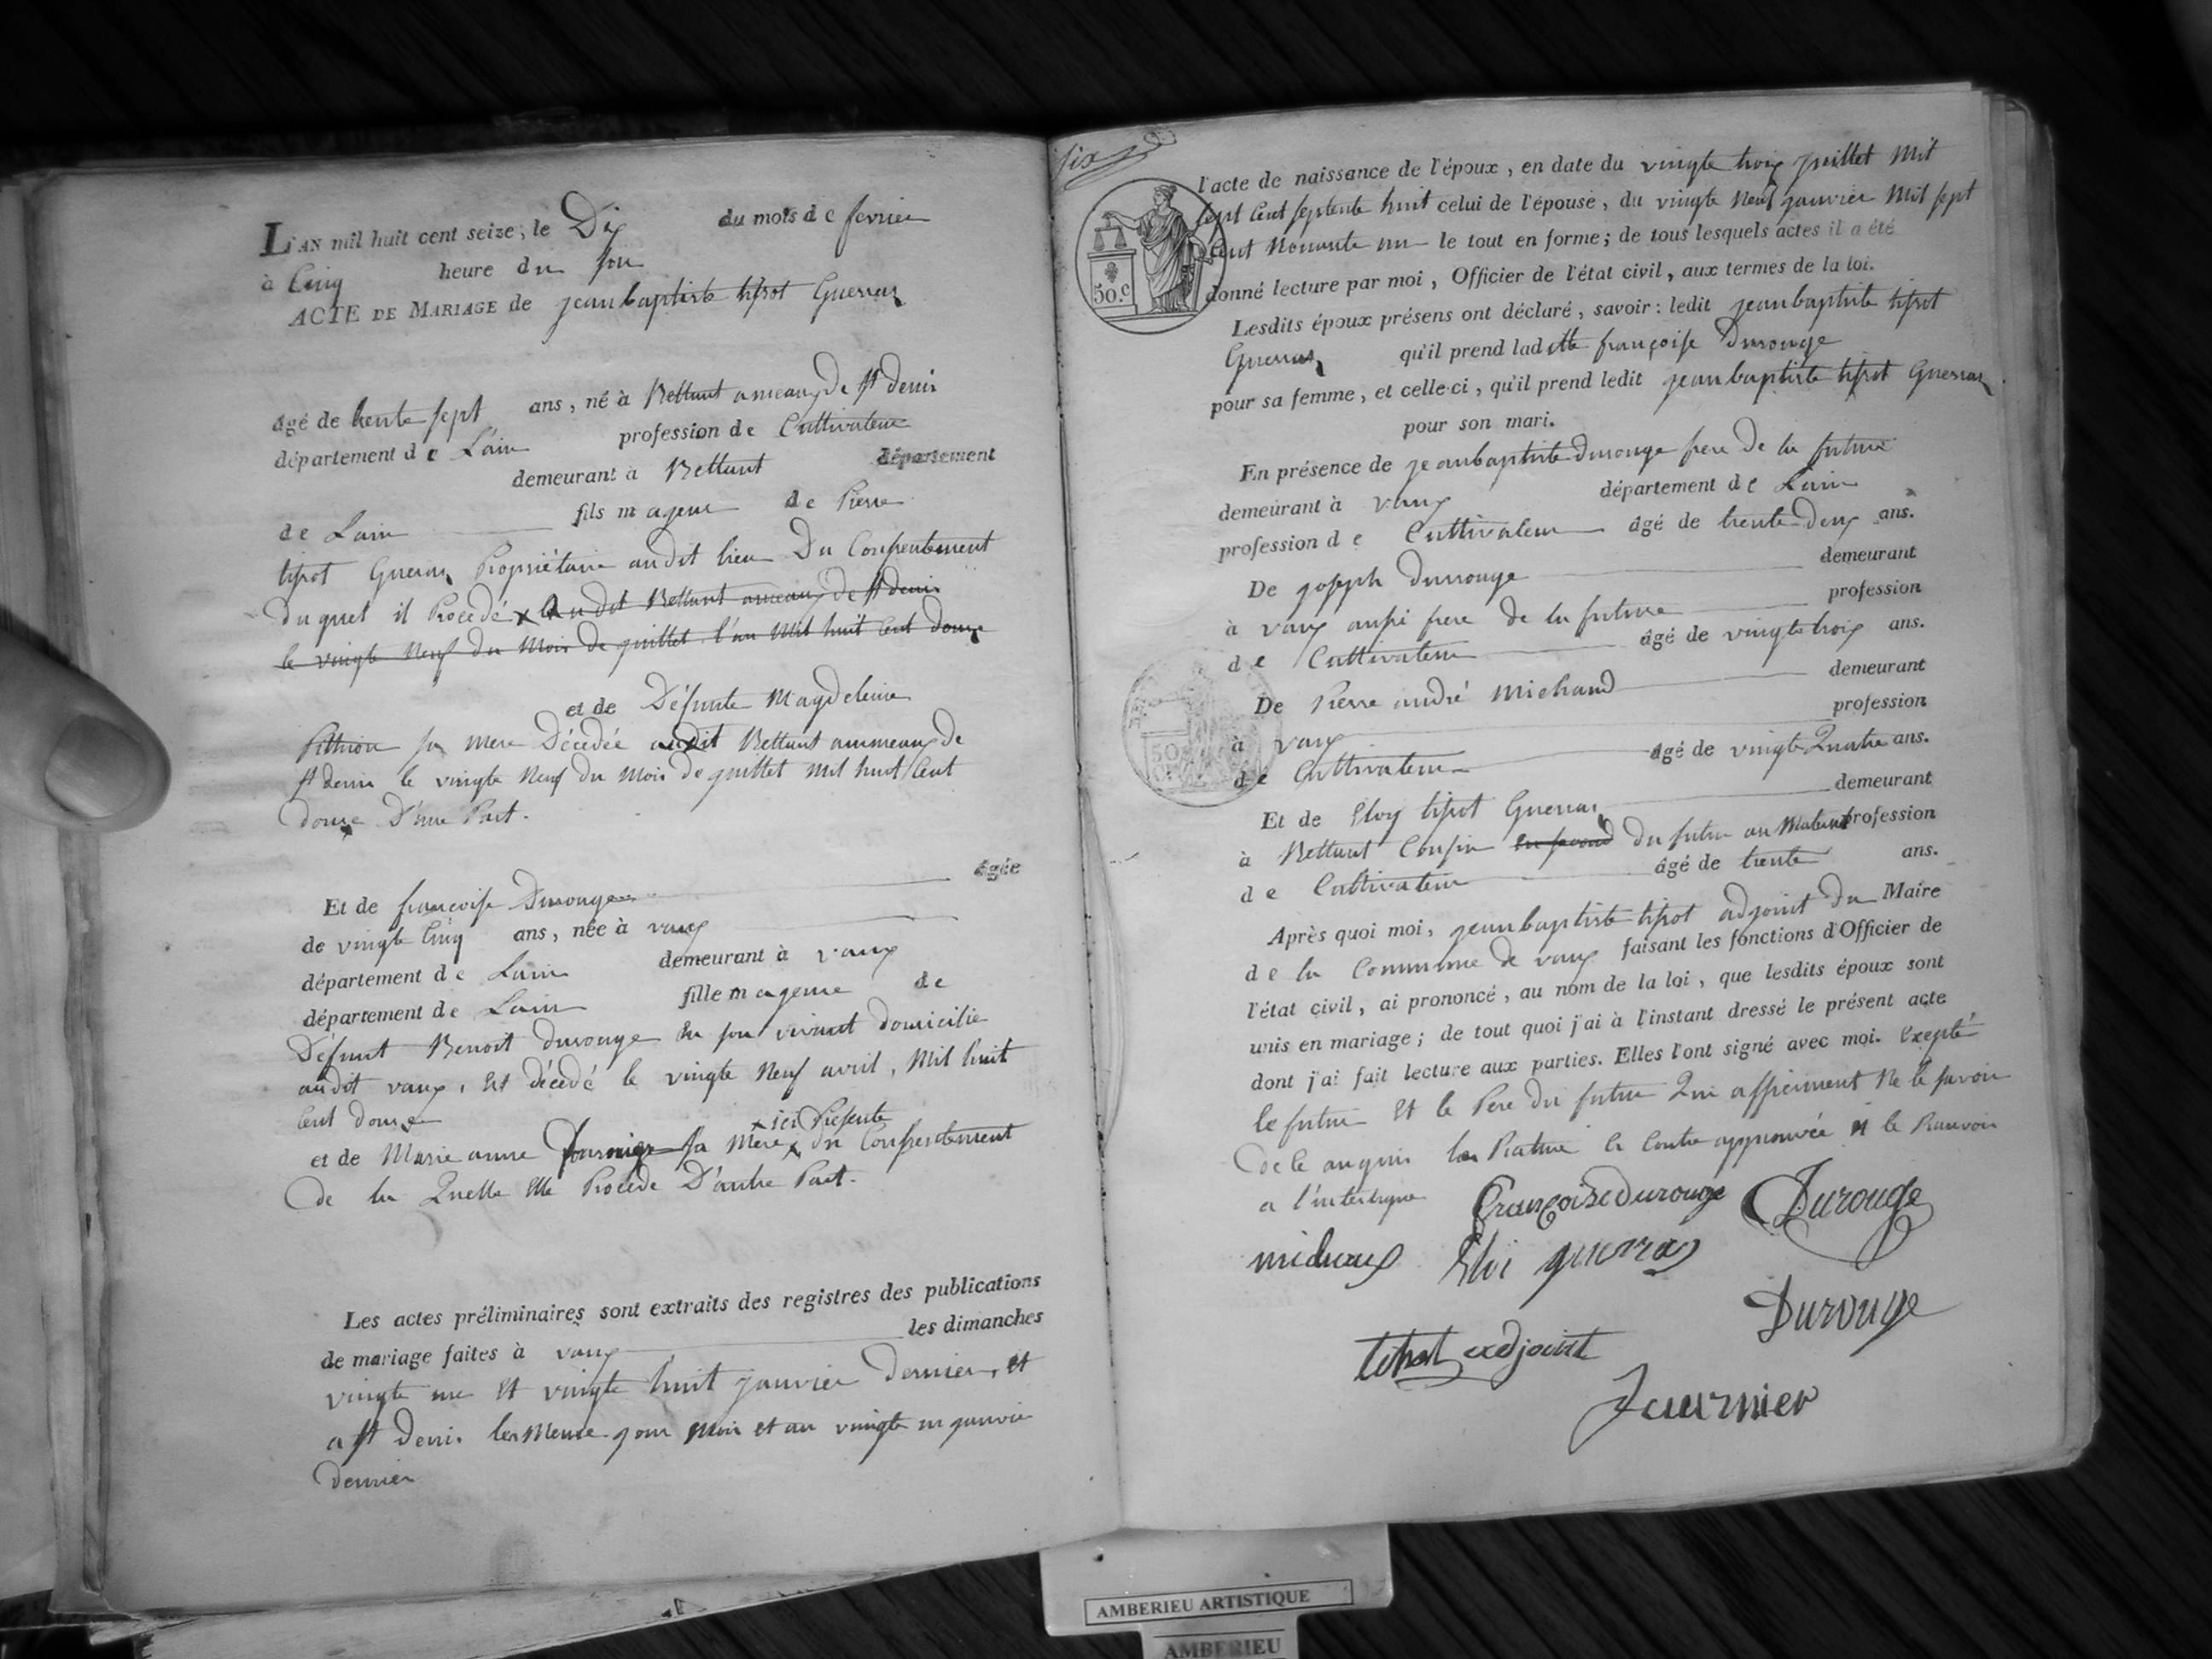 L'AN mil huit cent seize, le Dix du mois de fevrier
à Cinq heure du soir
ACTE DE MARIAGE de jean baptiste tissot Guerraz
âgé de trente sept ans, né à Bettant ameaux de St denis
département de Lain profession de Cultivateur
demeurant à Bettant département
de Lain fils mageur de Pierre
tissot Gueraz Propriétaire au dit lieu Du Consentement
du quel il Procedé x Au dit Bettant ameaux de St denis
le vingte Neuf du Mois de juillet l'an Mil huit Cent douze
et de Défunte Magdeleine
sa Mere Décedée audit Bettant ammeaux de
St denis le vingte Neuf du Mois de juillet Mil huit Cent
douze D'une Part.
Et de françoise Durouge âgée
de vingte Cinq ans, née à vaux
département de Lain demeurant à vaux
département de Lain fille mageure de
Défunt Benoit durouge En son vivant domicilié
audit vaux, Est décédé le vingte Neuf avril, Mil huit
Cent douze
x ici Présente
et de Marie anne fournier sa Mere x du Consentement
de la Quelle Elle Procede D'autre Part.
Les actes préliminaires sont extraits des registres des publications
de mariage faites à vaux les dimanches
vingte un Et vingte huit janvier Dernier, et
a St Denis les Meme jour Mois et an vingte un janvier
Dernier
six
50.c
l'acte de naissance de l'époux, en date du vingte trois juillet Mil
sept Cent septente huit celui de l'épouse, du vingte Neuf janvier Mil sept
Cent Nonante un le tout en forme; de tous lesquels actes il a été
donné lecture par moi, Officier de l'état civil, aux termes de la loi.
Lesdits époux présens ont déclaré, savoir: ledit jean baptiste tissot
Guerraz qu'il prend laditte françoise Durouge
pour sa femme, et celle-ci, qu'il prend ledit jean baptiste tissot Guerraz
pour son mari.
En présence de jean baptiste Durouge frere de la future
demeurant à vaux département de Lain
profession de Cultivateur âgé de trente Deux ans.
De joseph Durouge demeurant
à vaux aussi frere de la future profession
de Cultivateur âgé de vingte trois ans.
De Pierre andré Michaud demeurant
à vaux profession
de Cultivateur âgé de vingte Quatre ans.
Et de Eloy tissot Guerraz demeurant
à Bettant Cousin en second du futur au profession
de Cultivateur âgé de trente ans.
Après quoi moi, jean baptiste tissot adjoint du Maire
de la Commune de vaux faisant les fonctions d'Officier de
l'état civil, ai prononcé, au nom de la loi, que lesdits époux sont
unis en mariage; de tout quoi j'ai à l'instant dressé le présent acte
dont j'ai fait lecture aux parties. Elles l'ont signé avec moi. Exepté
le futur Et le Pere du futur Qui affirment Ne le savoir
la Rature Ci Contre approuvée et le Ranvoir
a l'interligne
Françoise durouge Durouge
michaux Eloi guerraz
Durouge
tissot adjoint
Fournier
50
AMBERIEU ARTISTIQUE
AMBERIEU